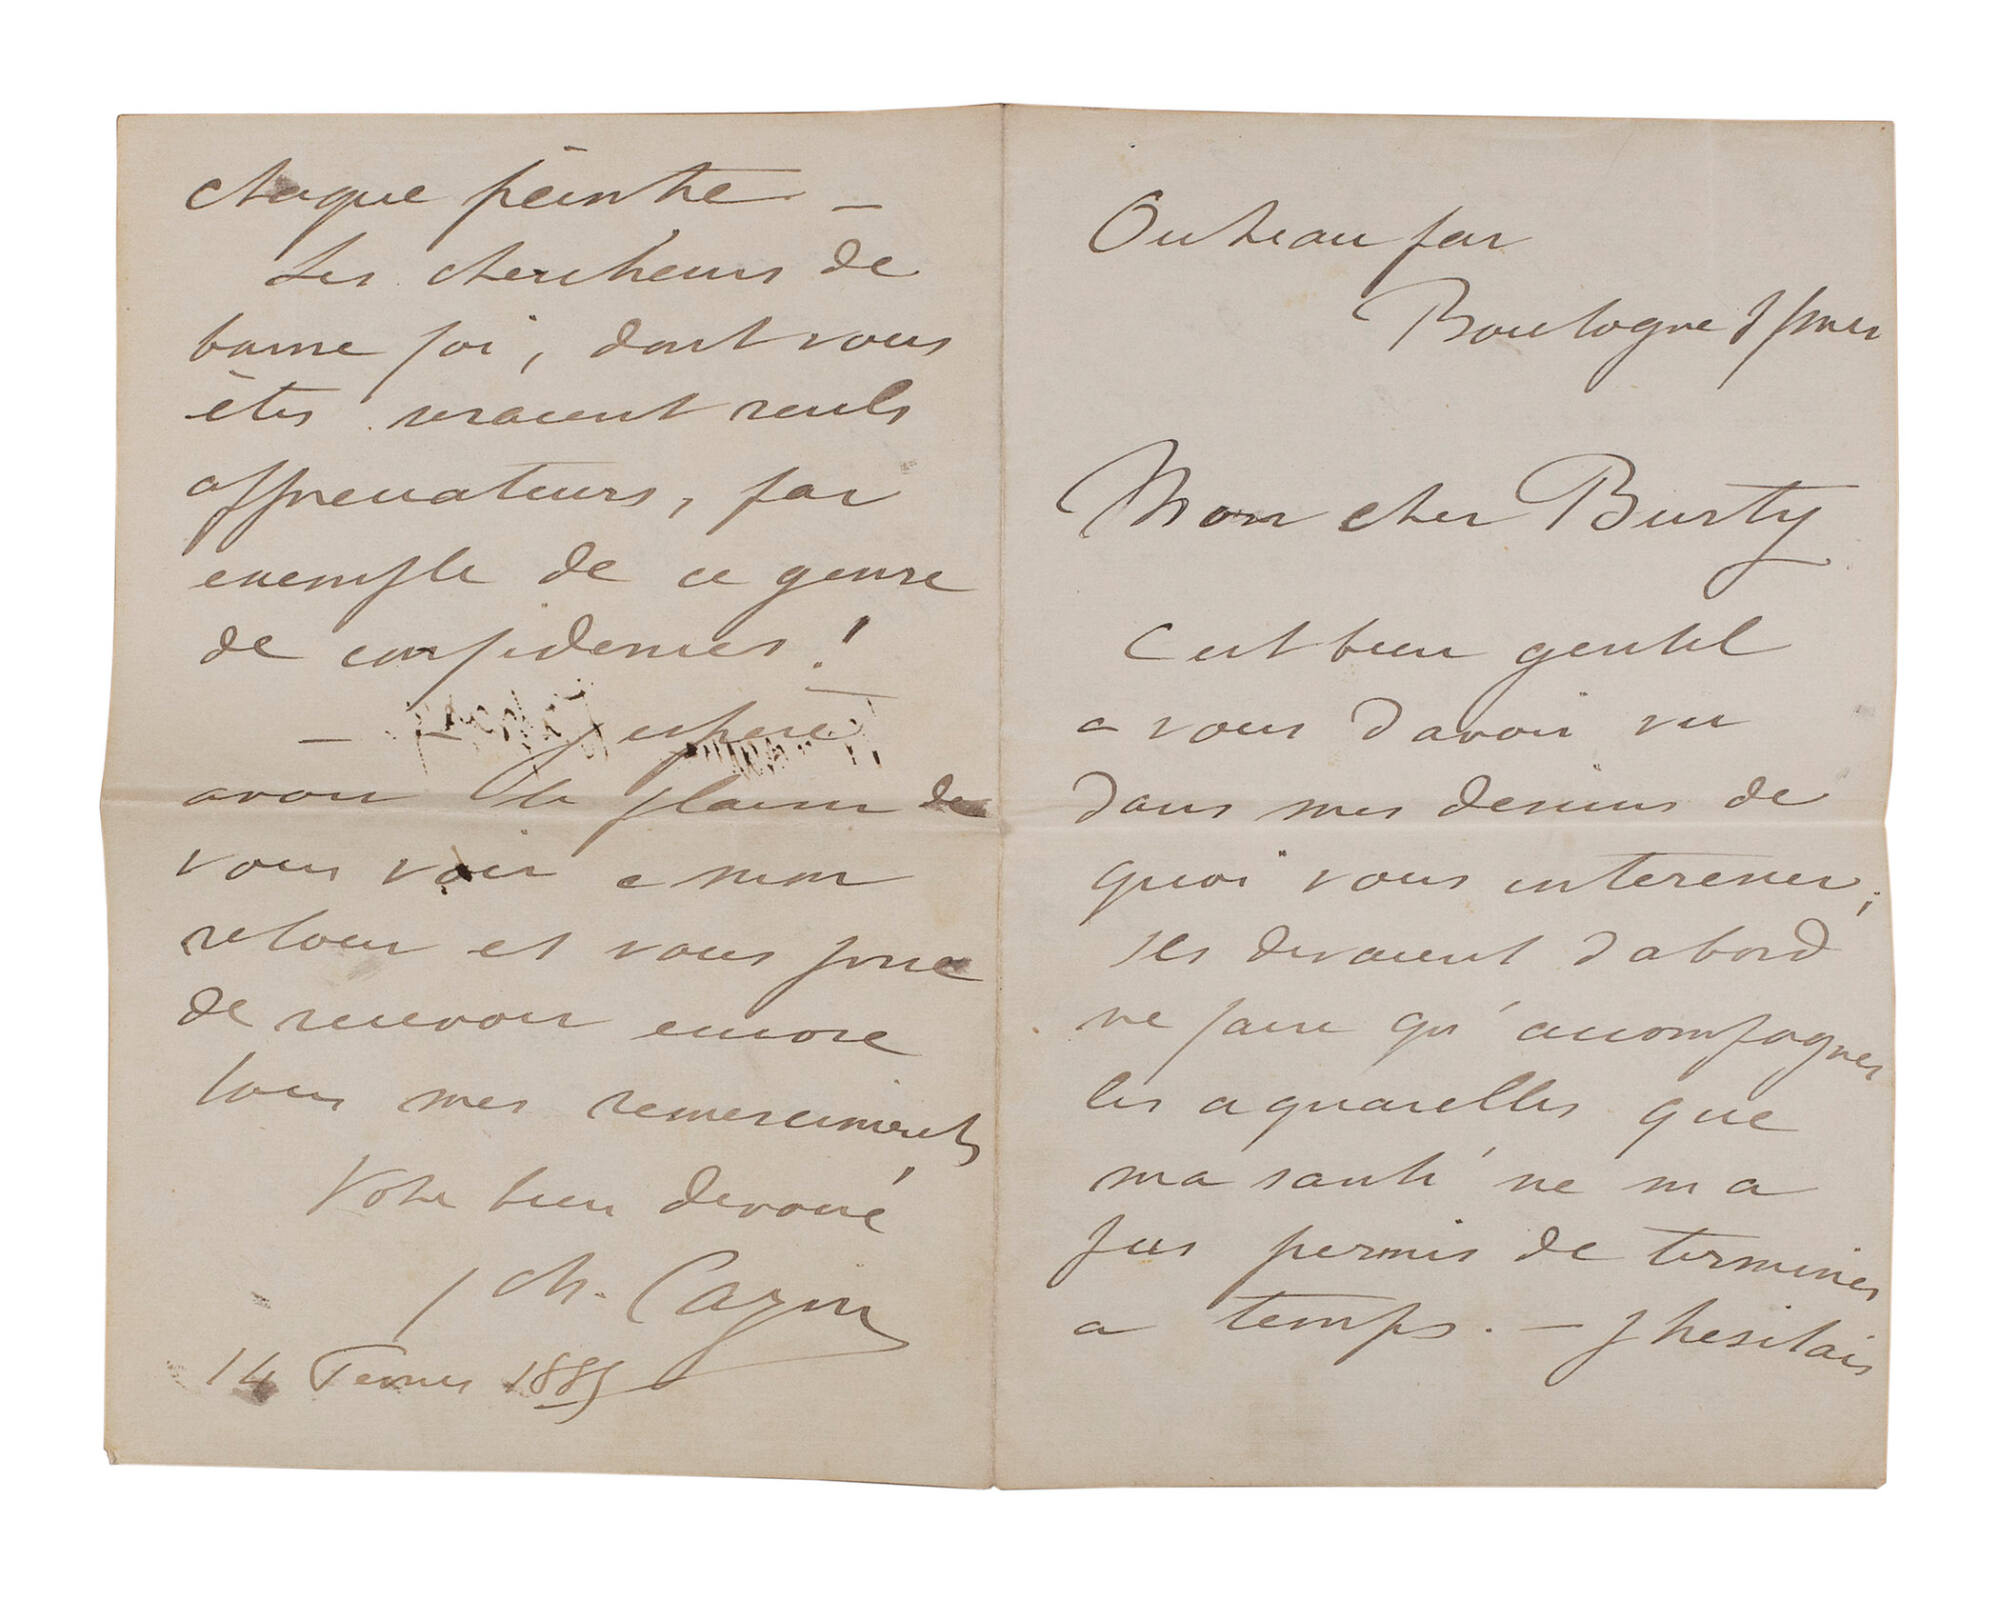 Outreau par
Boulogne s/mer
Mon cher Burty
C est bien gentil
a vous d avoir vu
dans mes dessins de
quoi vous interesser;
ils devaient d abord
ne faire qu'accompagner
les aquarelles que
ma santé ne m a
pas permis de terminer
a temps. — J hesitais
chaque peintre —
Les chercheurs de
bonne foi, dont vous
êtes seraient seuls
appreciateurs, par
exemple de ce genre
de confidences!
— J espere
avoir le plaisir de
vous voir a mon
retour et vous prie
de recevoir encore
tous mes remerciments
Votre bien devoué
J Ch. Cazin
14 Fevrier 1885